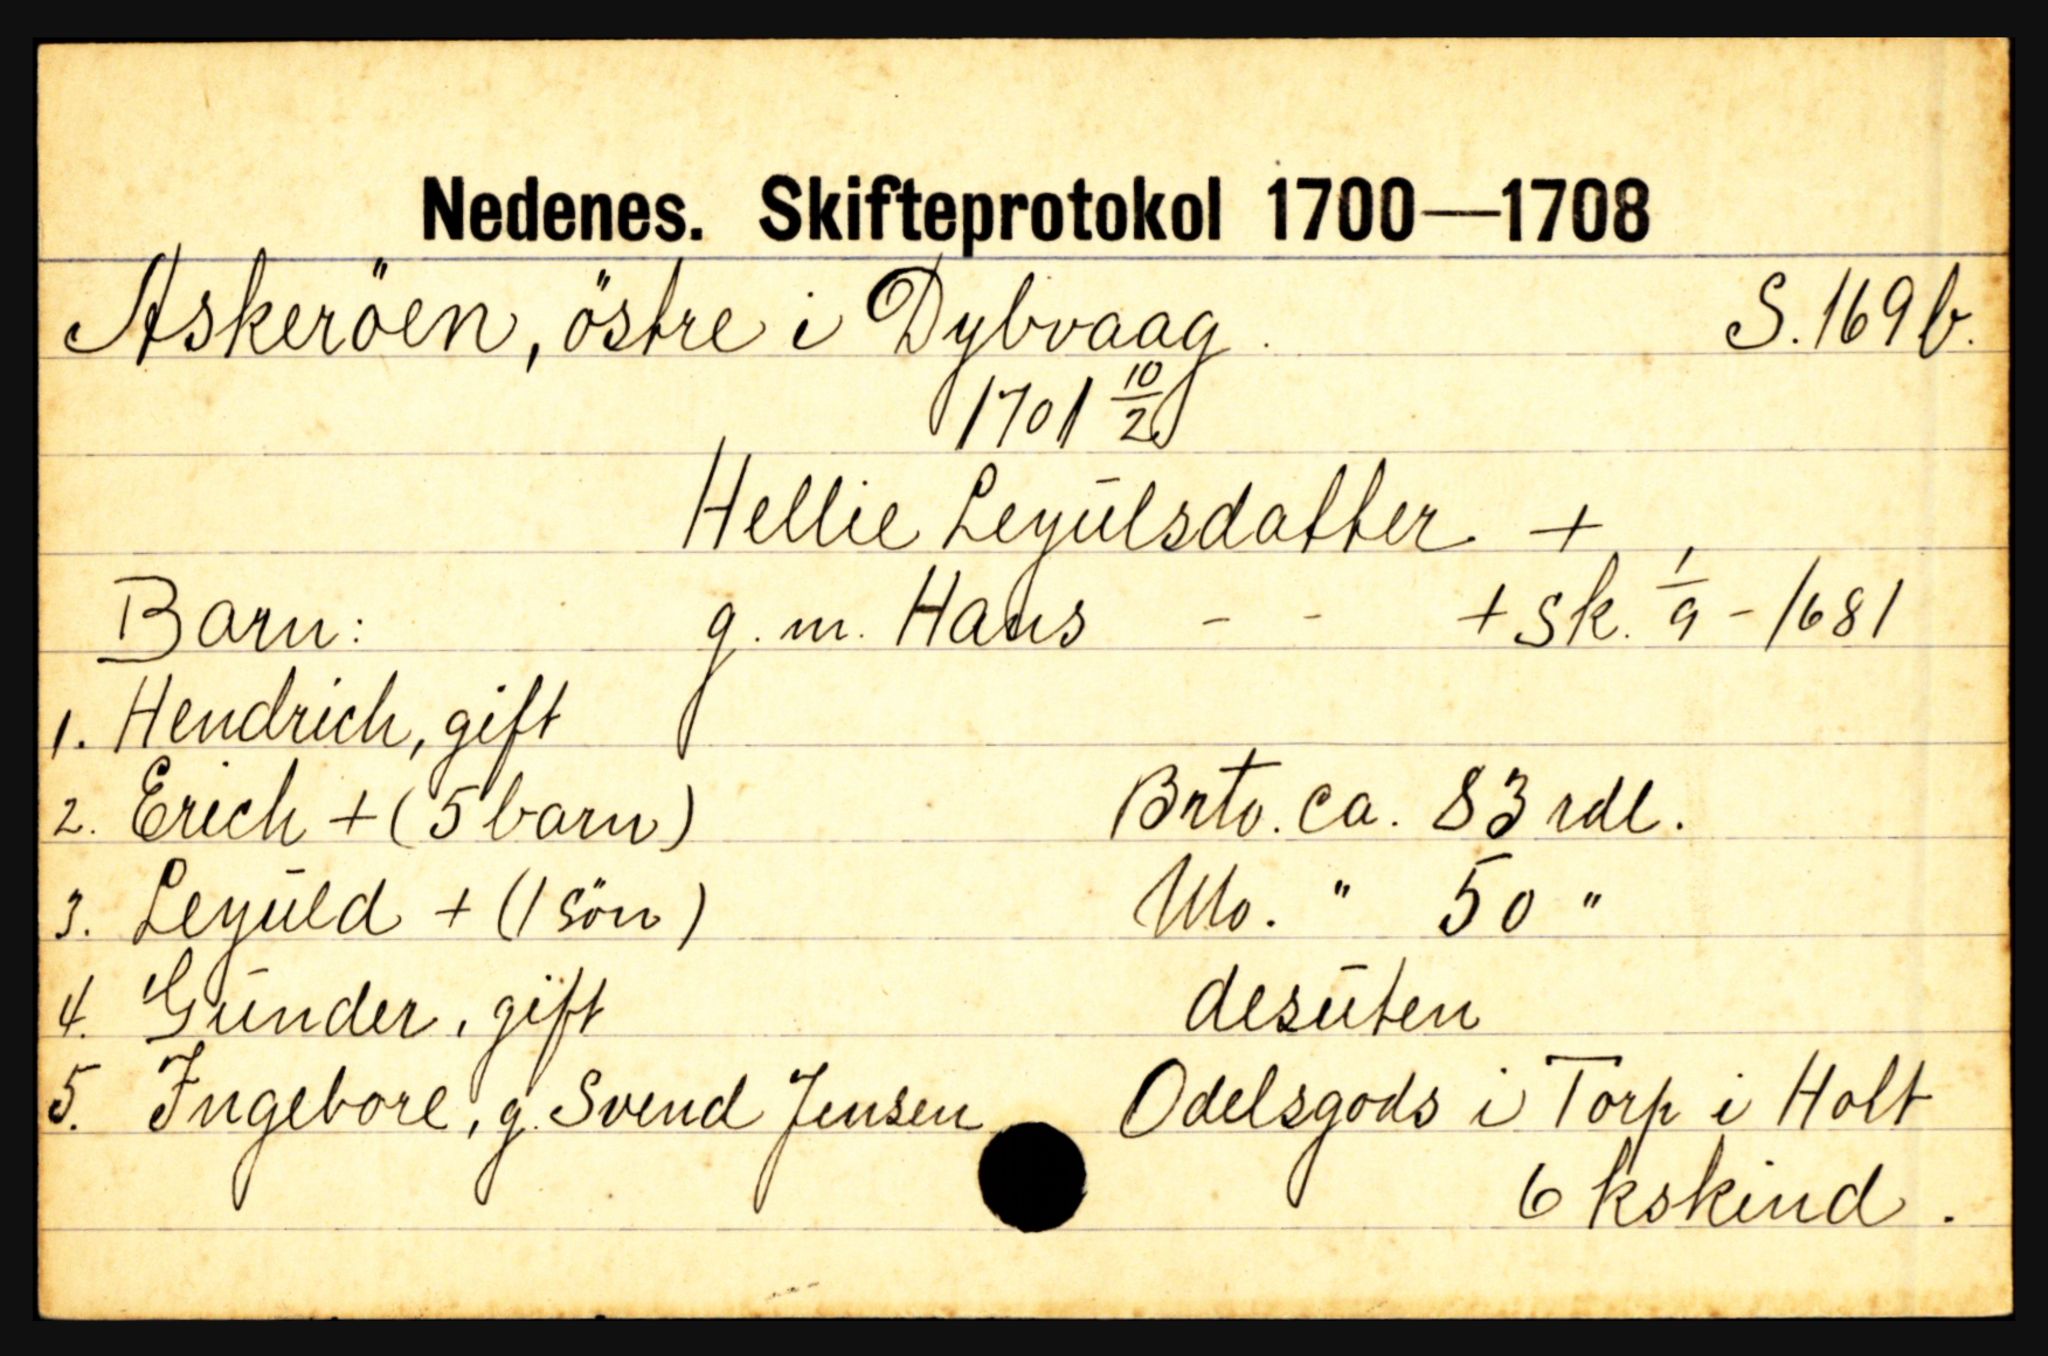 Nedenes. Skifteprotokol 1700—1708
Askeröen, östre i Dybvaag. S. 169 b.
1701 10/2
Hellie Leyulsdatter +
Barn: g. m. Hans - - + Sk. 1/9 - 1681
1. Hendrich, gift
2. Erich + (5 barn) Brto. ca. 83 rdl.
3. Leyuld + (1 sön) " 50 "
4. Gunder, gift desuten
5. Ingebore, g. Svend Jensen Odelsgods i Torp i Holt
6 kskind.